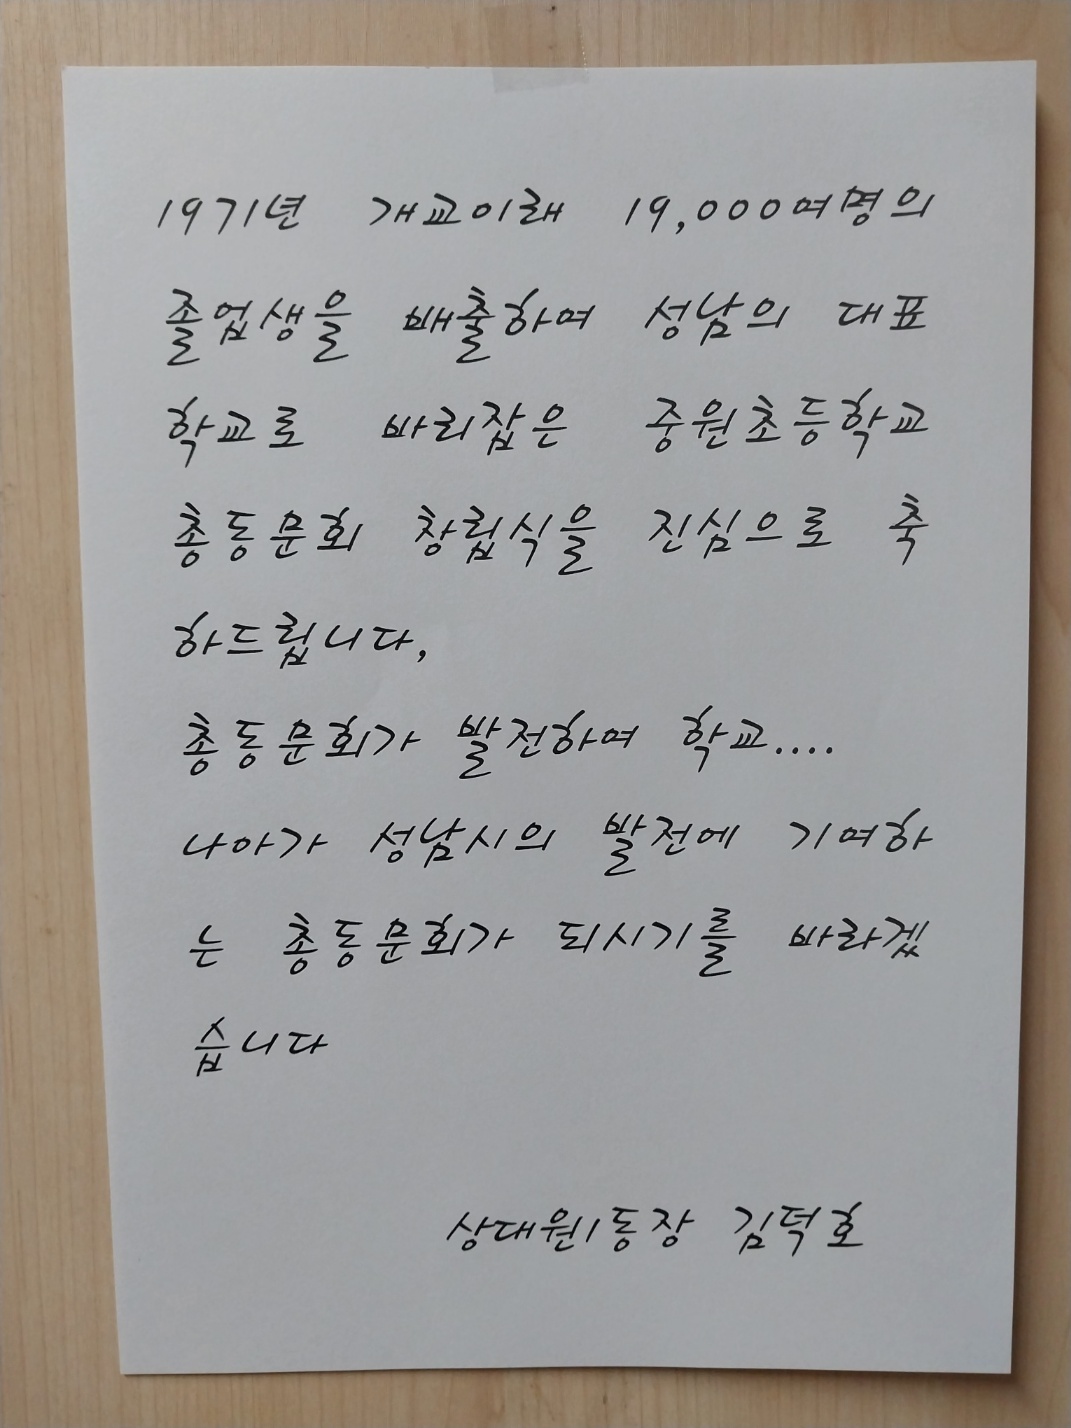 1971년 개교이래 19,000여명의
졸업생을 배출하여 성남의 대표
학교로 바리잡은 중원초등학교
총동문회 창립식을 진심으로 축
하드립니다,
총동문회가 발전하여 학교....
나아가 성남시의 발전에 기여하
는 총동문회가 되시기를 바라겠
습니다
상대원1동장 김덕호